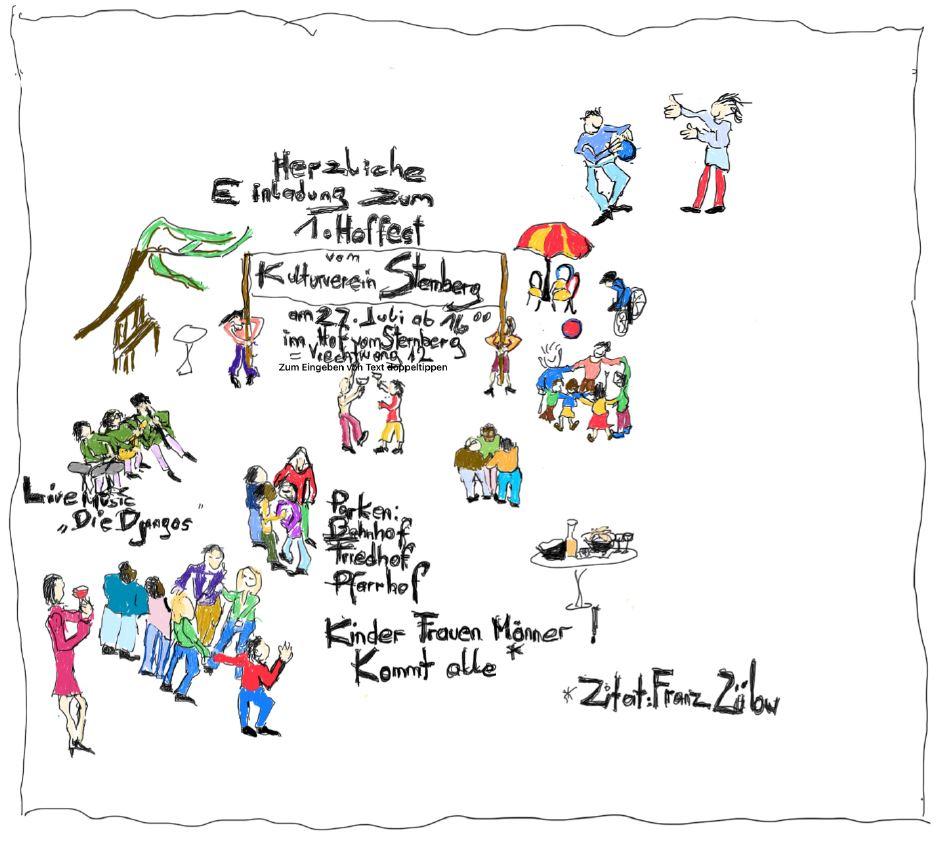 Herzliche
Einladung zum
1. Hoffest
vom
Kulturverein Sternberg
am 27. Juli ab 16⁰⁰
im Hof vom Sternberg
= Viechtwang 12
Zum Eingeben von Text doppeltippen
Live Music
„Die Djangos"
Parken:
Bahnhof
Friedhof
Pfarrhof
Kinder Frauen Männer !
Kommt alle *
* Zitat: Franz Zülow